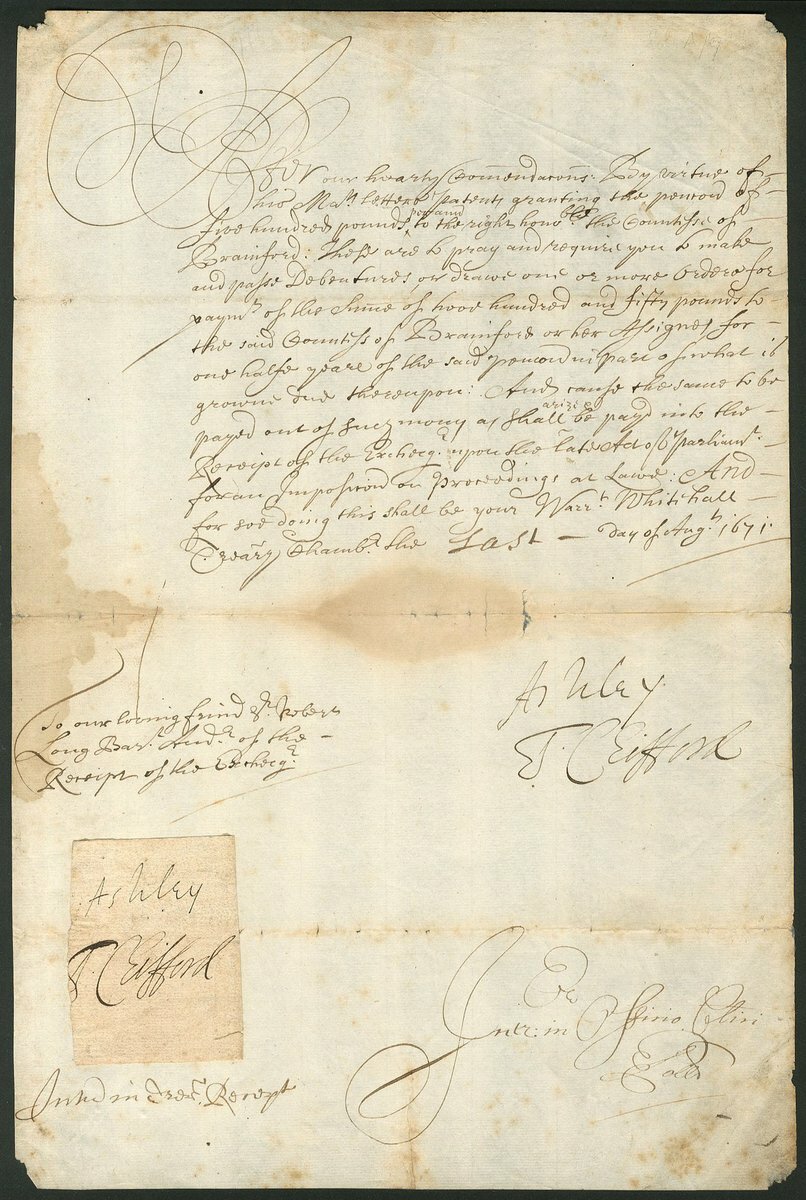 After our hearty Com̃endacons: By virtue of
his Mats letters Patents granting the pencon of
five hundred pounds p ann to the right honoble the Countesse of
Brainford: These are to pray and require you to make
and passe Debentures, or drawe one or more Orders for
paymt of the Sum̃e of two hundred and fifty pounds to
the said Countess of Brainford or her Assignes for
one halfe yeare of the said pencon in part of what is
growne due thereupon: And cause the same to be
payed out of such mony as shall arize & be payd into the
Receipt of the Exchecqr upon the late Act of Parliamt
for an Imposicon on Proceedings at Lawe: And
for soe doing this shall be your Warrt Whitehall
Treãry Chambrs the Last day of Augt 1671.
Ashley
T. Clifford
To our loving freind Sr. Robert
Long Bart. Audr of the
Receipt of the Exchecqr
Ashley
T. Clifford
Intr: in Officio Clĩci
Intrd in Receipt